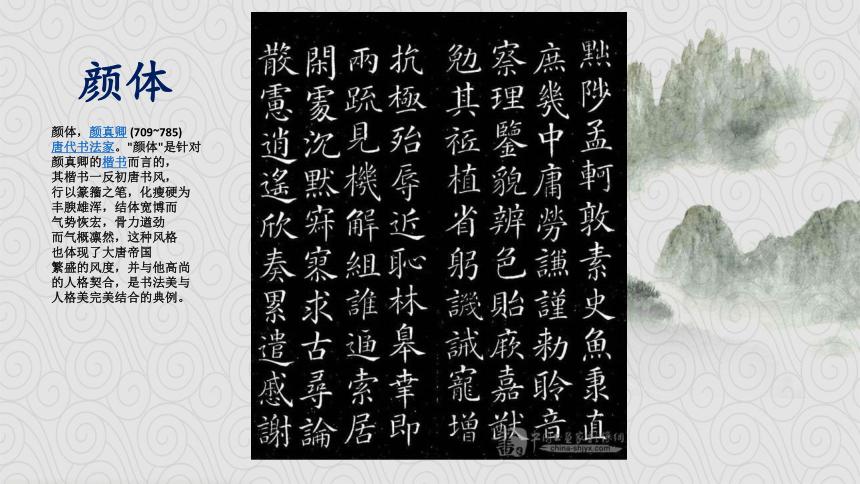 颜体
颜体，颜真卿 (709~785)
唐代书法家。"颜体"是针对
颜真卿的楷书而言的，
其楷书一反初唐书风，
行以篆籀之笔，化瘦硬为
丰腴雄浑，结体宽博而
气势恢宏，骨力遒劲
而气概凛然，这种风格
也体现了大唐帝国
繁盛的风度，并与他高尚
的人格契合，是书法美与
人格美完美结合的典例。
黜陟孟軻敦素史魚秉直
庶幾中庸勞謙謹勅聆音
察理鑒貌辨色貽厥嘉猷
勉其祗植省躬譏誡寵增
抗極殆辱近恥林皋幸即
兩疏見機解組誰逼索居
閑處沉默寂寥求古尋論
散慮逍遙欣奏累遣慼謝
china-shjyx.com